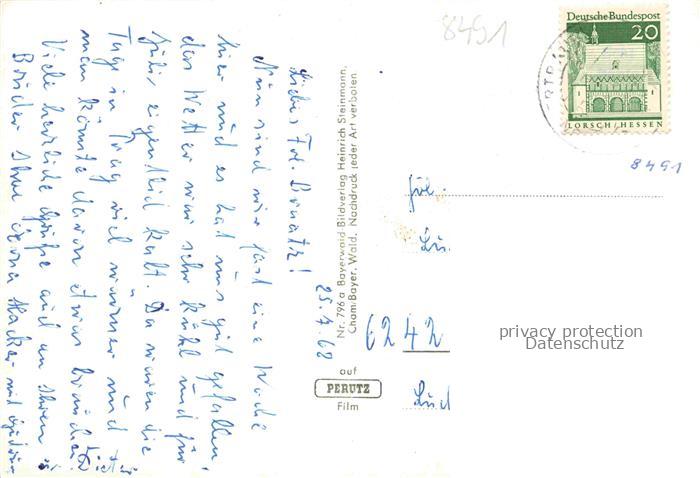 8491
Deutsche Bundespost
20
LORSCH/HESSEN
8491
25.7.68
Liebes Frl. Donatz!
Nun sind wir fast eine Woche
hier und es hat uns gut gefallen,
das Wetter war sehr kühl und für
Juli, eigentlich kalt. Da waren die
Tage in Prag viel wärmer und
man könnte davon etwas brauchen.
Viele herzliche Grüße auch an Ihren
Bruder Ihre
Dieter
Nr. 796 a Bayerwald Bildverlag Heinrich Steinmann,
Cham/Bayer. Wald. Nachdruck jeder Art verboten
auf
PERUTZ
Film
Frl.
6242
privacy protection
Datenschutz